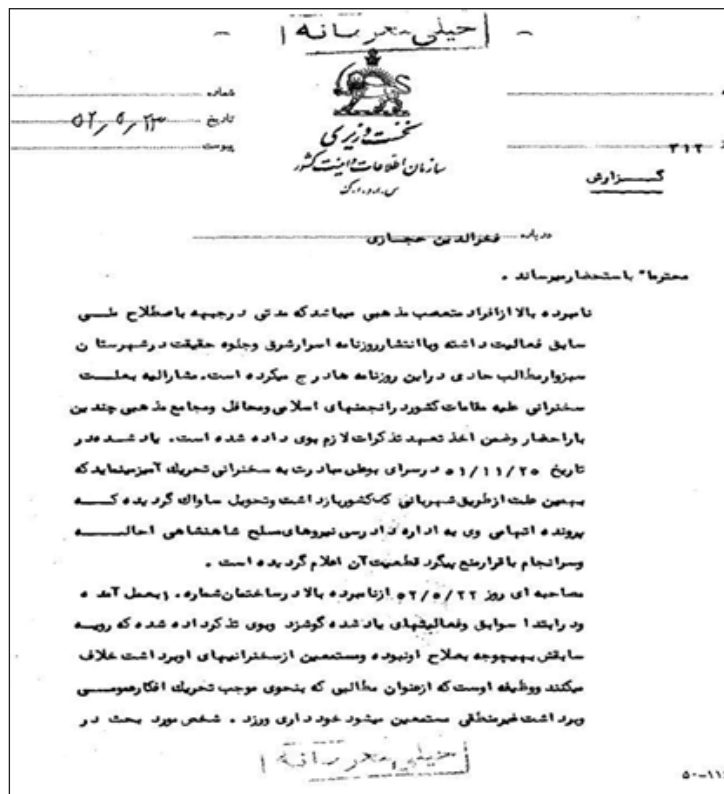 خیلی محرمانه
شماره
تاریخ ۵۲/۵/۲۳
پیوست
نخست وزیری
سازمان اطلاعات و امنیت کشور
س.ا.و.ا.ک
۳۱۲
گزارش
درباره فخرالدین حجازی
محترما" باستحضار میرساند .
نامبرده بالا از افراد متعصب مذهبی میباشد که مدتی در جبهه باصطلاح ملی
سابق فعالیت داشته وبا انتشار روزنامه اسرار شرق وجلوه حقیقت در شهرستان
سبزوار مطالب حادی در این روزنامه ها درج میکرده است. مشارالیه بعلت
سخنرانی علیه مقامات کشور در انجمنهای اسلامی ومحافل ومجامع مذهبی چندین
بار احضار وضمن اخذ تعهد تذکرات لازم بوی داده شده است. یاد شده در
تاریخ ۵۱/۱۱/۲۵ در سرای بوعلی مبادرت به سخنرانی تحریک آمیز مینماید که
بهمین علت از طریق شهربانی کشور بازداشت وتحویل ساواک گردیده که
پرونده اتهامی وی به اداره دادرسی نیروهای مسلح شاهنشاهی احاله
وسرانجام با قرار منع پیگرد قطعیت آن اعلام گردیده است .
مصاحبه ای روز ۵۲/۵/۲۲ از نامبرده بالا در ساختمان شماره ۱ بعمل آمده
ودر ابتدا سوابق وفعالیتهای یاد شده گوشزد وبوی تذکر داده شده که رویه
سابقش بهیچوجه بصلاح او نبوده ومستمعین از سخنرانیهای او برداشت خلاف
میکنند ووظیفه اوست که از عنوان مطالبی که بنحوی موجب تحریک افکار عمومی
وبرداشت غیر منطقی مستمعین میشود خودداری ورزد . شخص مورد بحث در
خیلی محرمانه